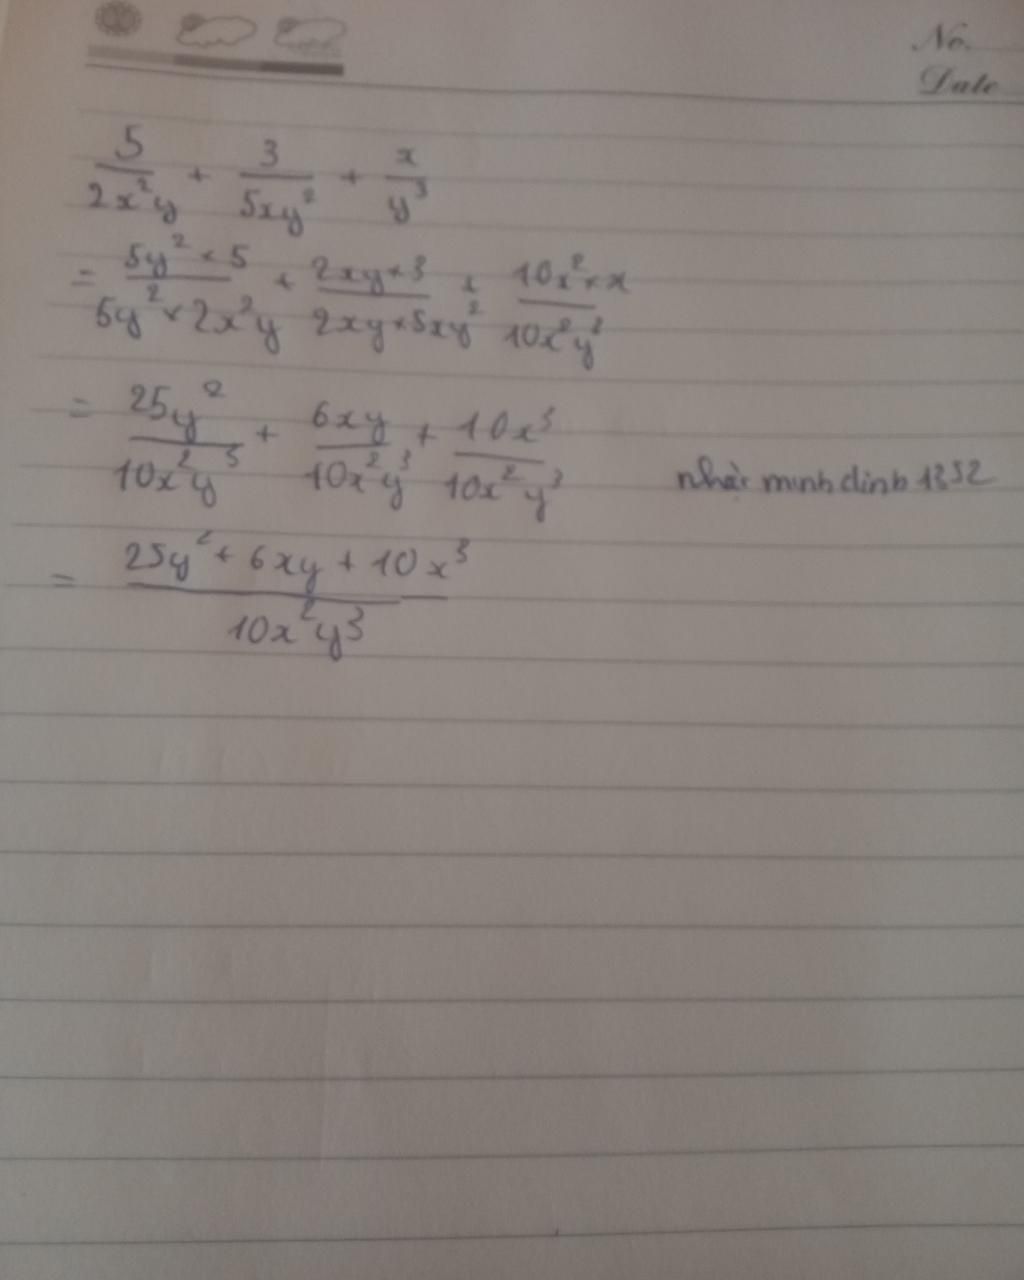 No.
Date
5/2x²y + 3/5xy² + x/y³
= 5y² × 5/5y² × 2x²y + 2xy × 3/2xy × 5xy² + 10x² × x/10x²y³
= 25y²/10x²y³ + 6xy/10x²y³ + 10x³/10x²y³ nhật minh dinh 1352
= 25y² + 6xy + 10x³/10x²y³